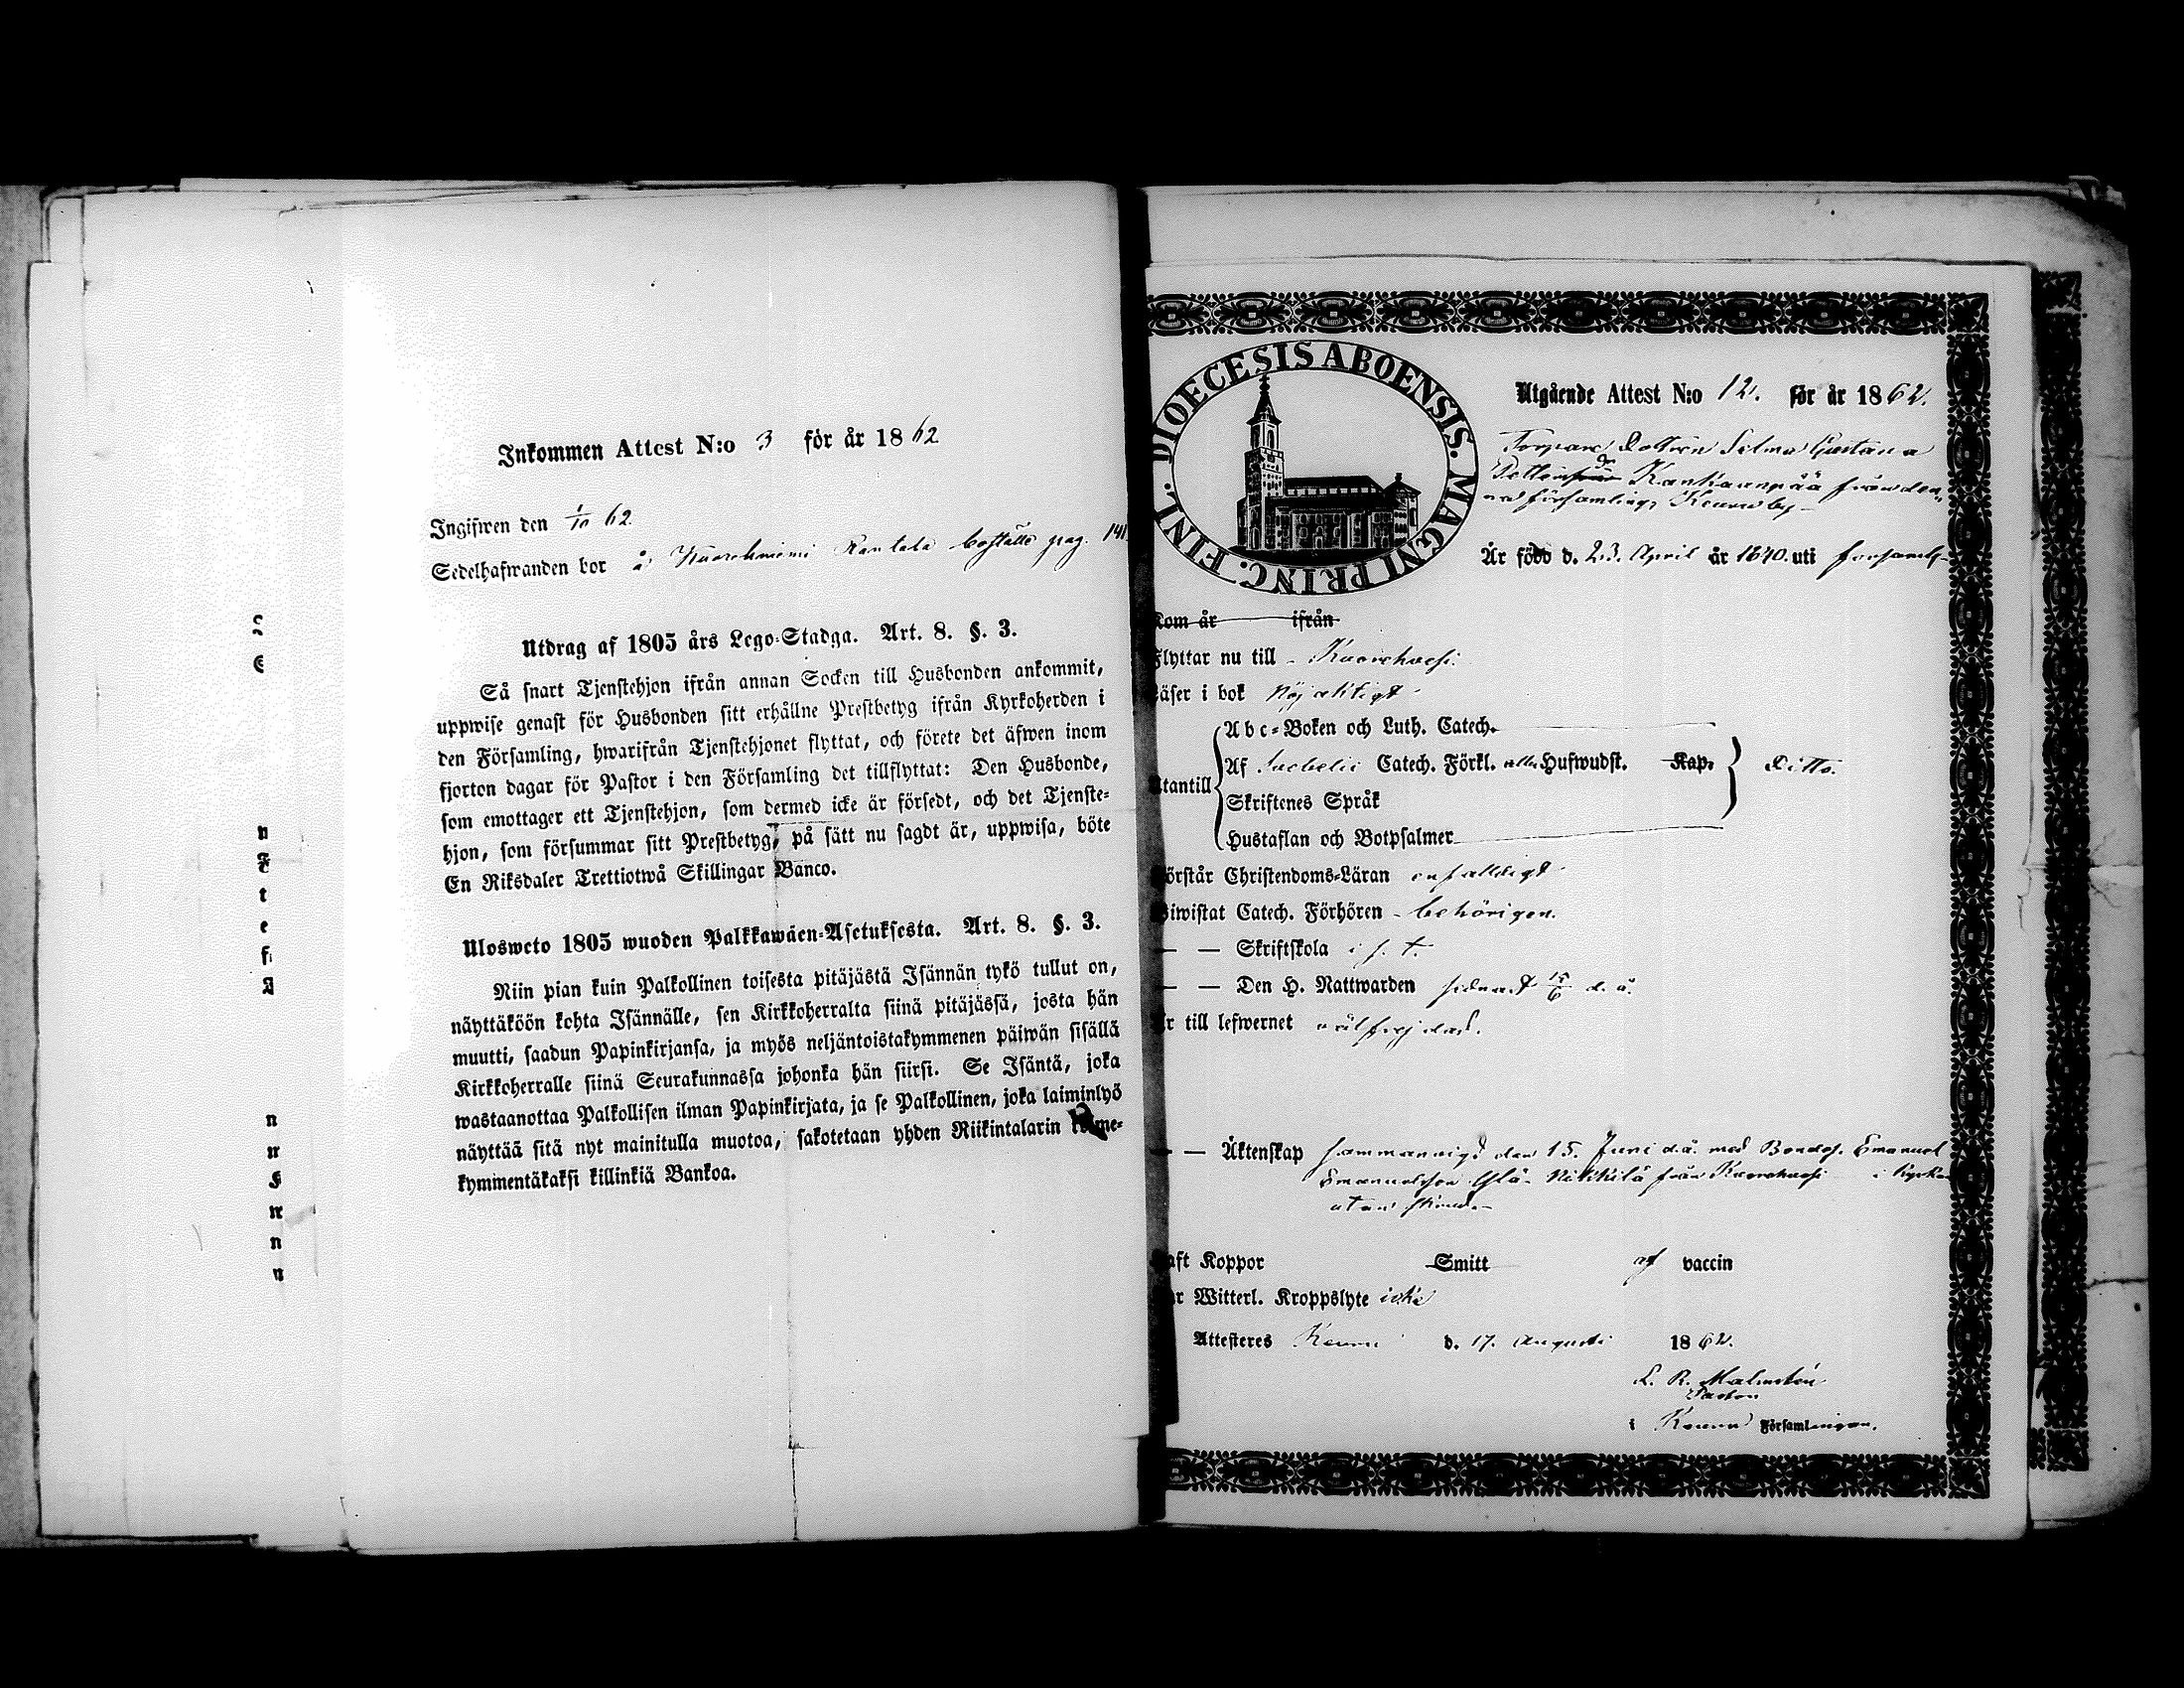 Inkommen Attest N:o 3 för år 1862
Ingifwen den 1/10 62.
Sedelhafwanden bor å Kuorehniemi Rantala boställe pag. 141
Utdrag af 1805 års Lego-Stadga. Art. 8. §. 3.
Så snart Tjenstehjon ifrån annan Socken till Husbonden ankommit,
uppwise genast för Husbonden sitt erhållne Prestbetyg ifrån Kyrkoherden i
den Församling, hwarifrån Tjenstehjonet flyttat, och förete det äfwen inom
fjorton dagar för Pastor i den Församling det tillflyttat: Den Husbonde,
som emottager ett Tjenstehjon, som dermed icke är försedt, och det Tjenste-
hjon, som försummar sitt Prestbetyg, på sätt nu sagdt är, uppwisa, böte
En Riksdaler Trettiotwå Skillingar Banco.
Ulosweto 1805 wuoden Palkkawäen-Asetuksesta. Art. 8. §. 3.
Niin pian kuin Palkollinen toisesta pitäjästä Isännän tykö tullut on,
näyttäköön kohta Isännälle, sen Kirkkoherralta siinä pitäjässä, josta hän
muutti, saadun Papinkirjansa, ja myös neljäntoistakymmenen päiwän sisällä
Kirkkoherralle siinä Seurakunnassa johonka hän siirsi. Se Isäntä, joka
wastaanottaa Palkollisen ilman Papinkirjata, ja se Palkollinen, joka laiminlyö
näyttää sitä nyt mainitulla muotoa, sakotetaan yhden Riikintalarin kolme-
kymmentäkaksi killinkiä Bankoa.
DIOECESIS ABOENSIS. MAGNI PRINC. FINL.
Utgående Attest N:o 12. för år 1862.
Torpare Dottren Selma Gustava
Kankaanpää från den-
na församlings Keuru by
Är född d. 23. April år 1840. uti församl-
Kom år ifrån
Flyttar nu till - Kuorehvesi.
Läser i bok Nöjaktigt
Utantill
Abc-Boken och Luth. Catech.
Af Svebelii Catech. Förkl. alla Hufwudst. Kap. Ditto.
Skriftenes Språk
Hustaflan och Botpsalmer
Förstår Christendoms-Läran enfaldigt
Biwistat Catech. Förhören - behörigen.
— — Skriftskola i s. t.
— — Den H. Nattwarden sednast 15/6 d. å.
Är till lefwernet välfrejdad.
— — Äktenskap sammanvigd den 15. Juni d.å. med Bondes. Emanuel
Emanuelsson Ylä-Nikkilä från Kuorehvesi i Kyrkan
utan
Haft Koppor Smitt af vaccin
Har Witterl. Kroppslyte icke
Attesteres Keuru d. 17. Augusti 1862.
L. R. Malmstén
Pastor
i Keuru Församlingen.